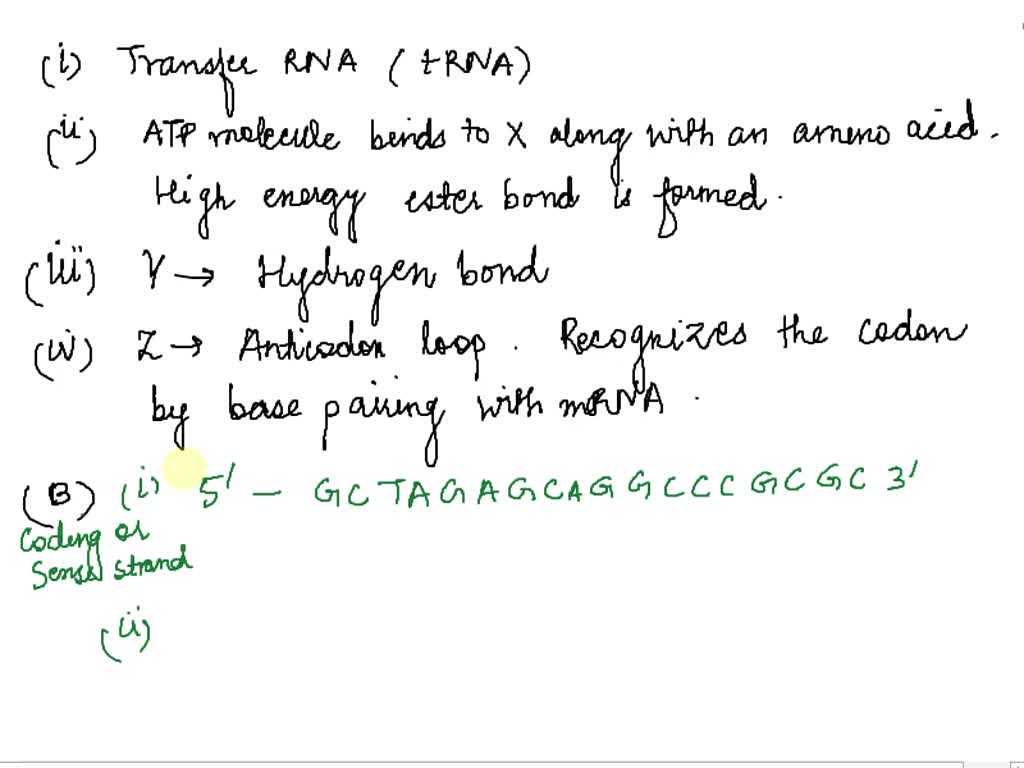 (i) Transfer RNA (tRNA)
(ii) ATP molecule binds to X along with an amino acid.
High energy ester bond is formed.
(iii) Y → Hydrogen bond
(iv) Z → Anticodon loop. Recognizes the codon
by base pairing with mRNA.
(B) (i) 5' - GCTAGAGCAGGCCCGCGC 3'
Coding or
Sense strand
(ii)